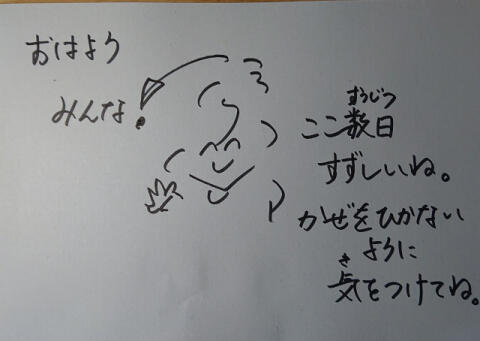 おはよう
みんな!
すうじつ
ここ数日
すずしいね。
かぜをひかない
ように
き
気をつけてね。